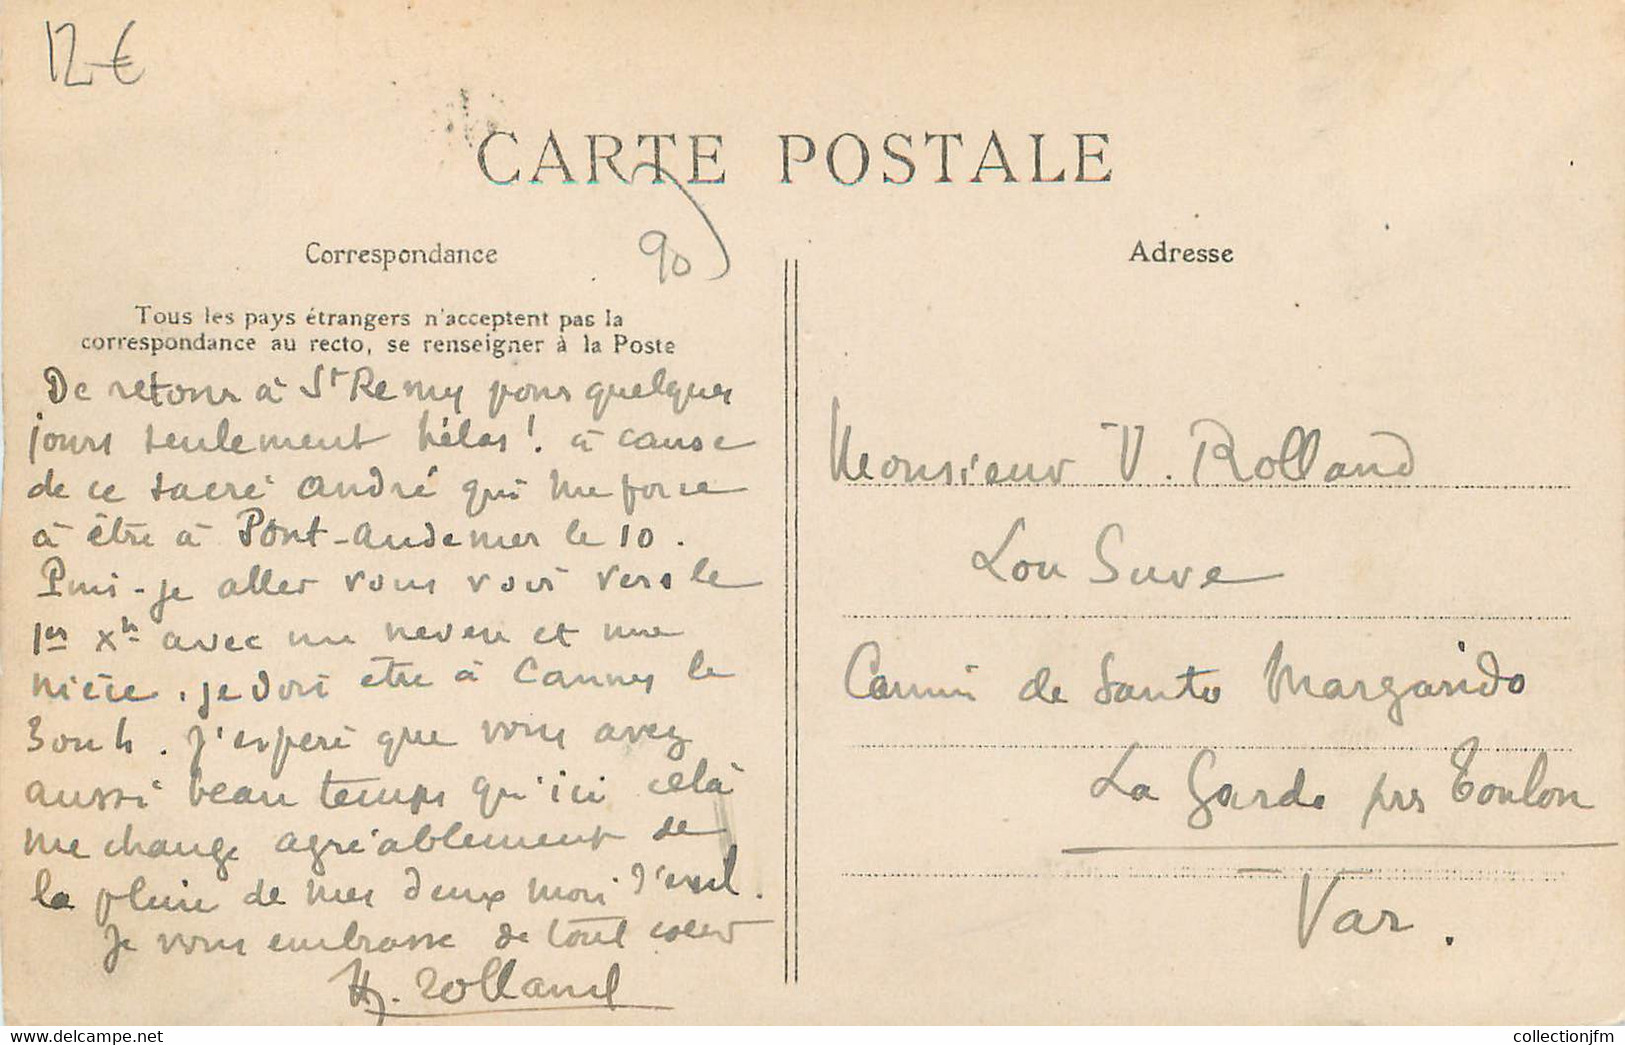 12 €
CARTE POSTALE
Correspondance
90
Tous les pays étrangers n'acceptent pas la
correspondance au recto, se renseigner à la Poste
De retour à St Remy pour quelques
jours seulement hélas ! à cause
de ce sacré André qui me force
à être à Pont-Audemer le 10.
Puis-je aller vous voir vers le
1er Xh avec un neveu et une
nièce. je dois être à Cannes le
3 ou 4. J'espère que vous avez
aussi beau temps qu'ici celà
me change agréablement de
la pluie de mes deux mois d'exil.
Je vous embrasse de tout coeur
H. Rolland
Adresse
Monsieur V. Rolland
Lou Suve
Camin de Santo Margarido
La Garde prs Toulon
Var.
collectionjfm